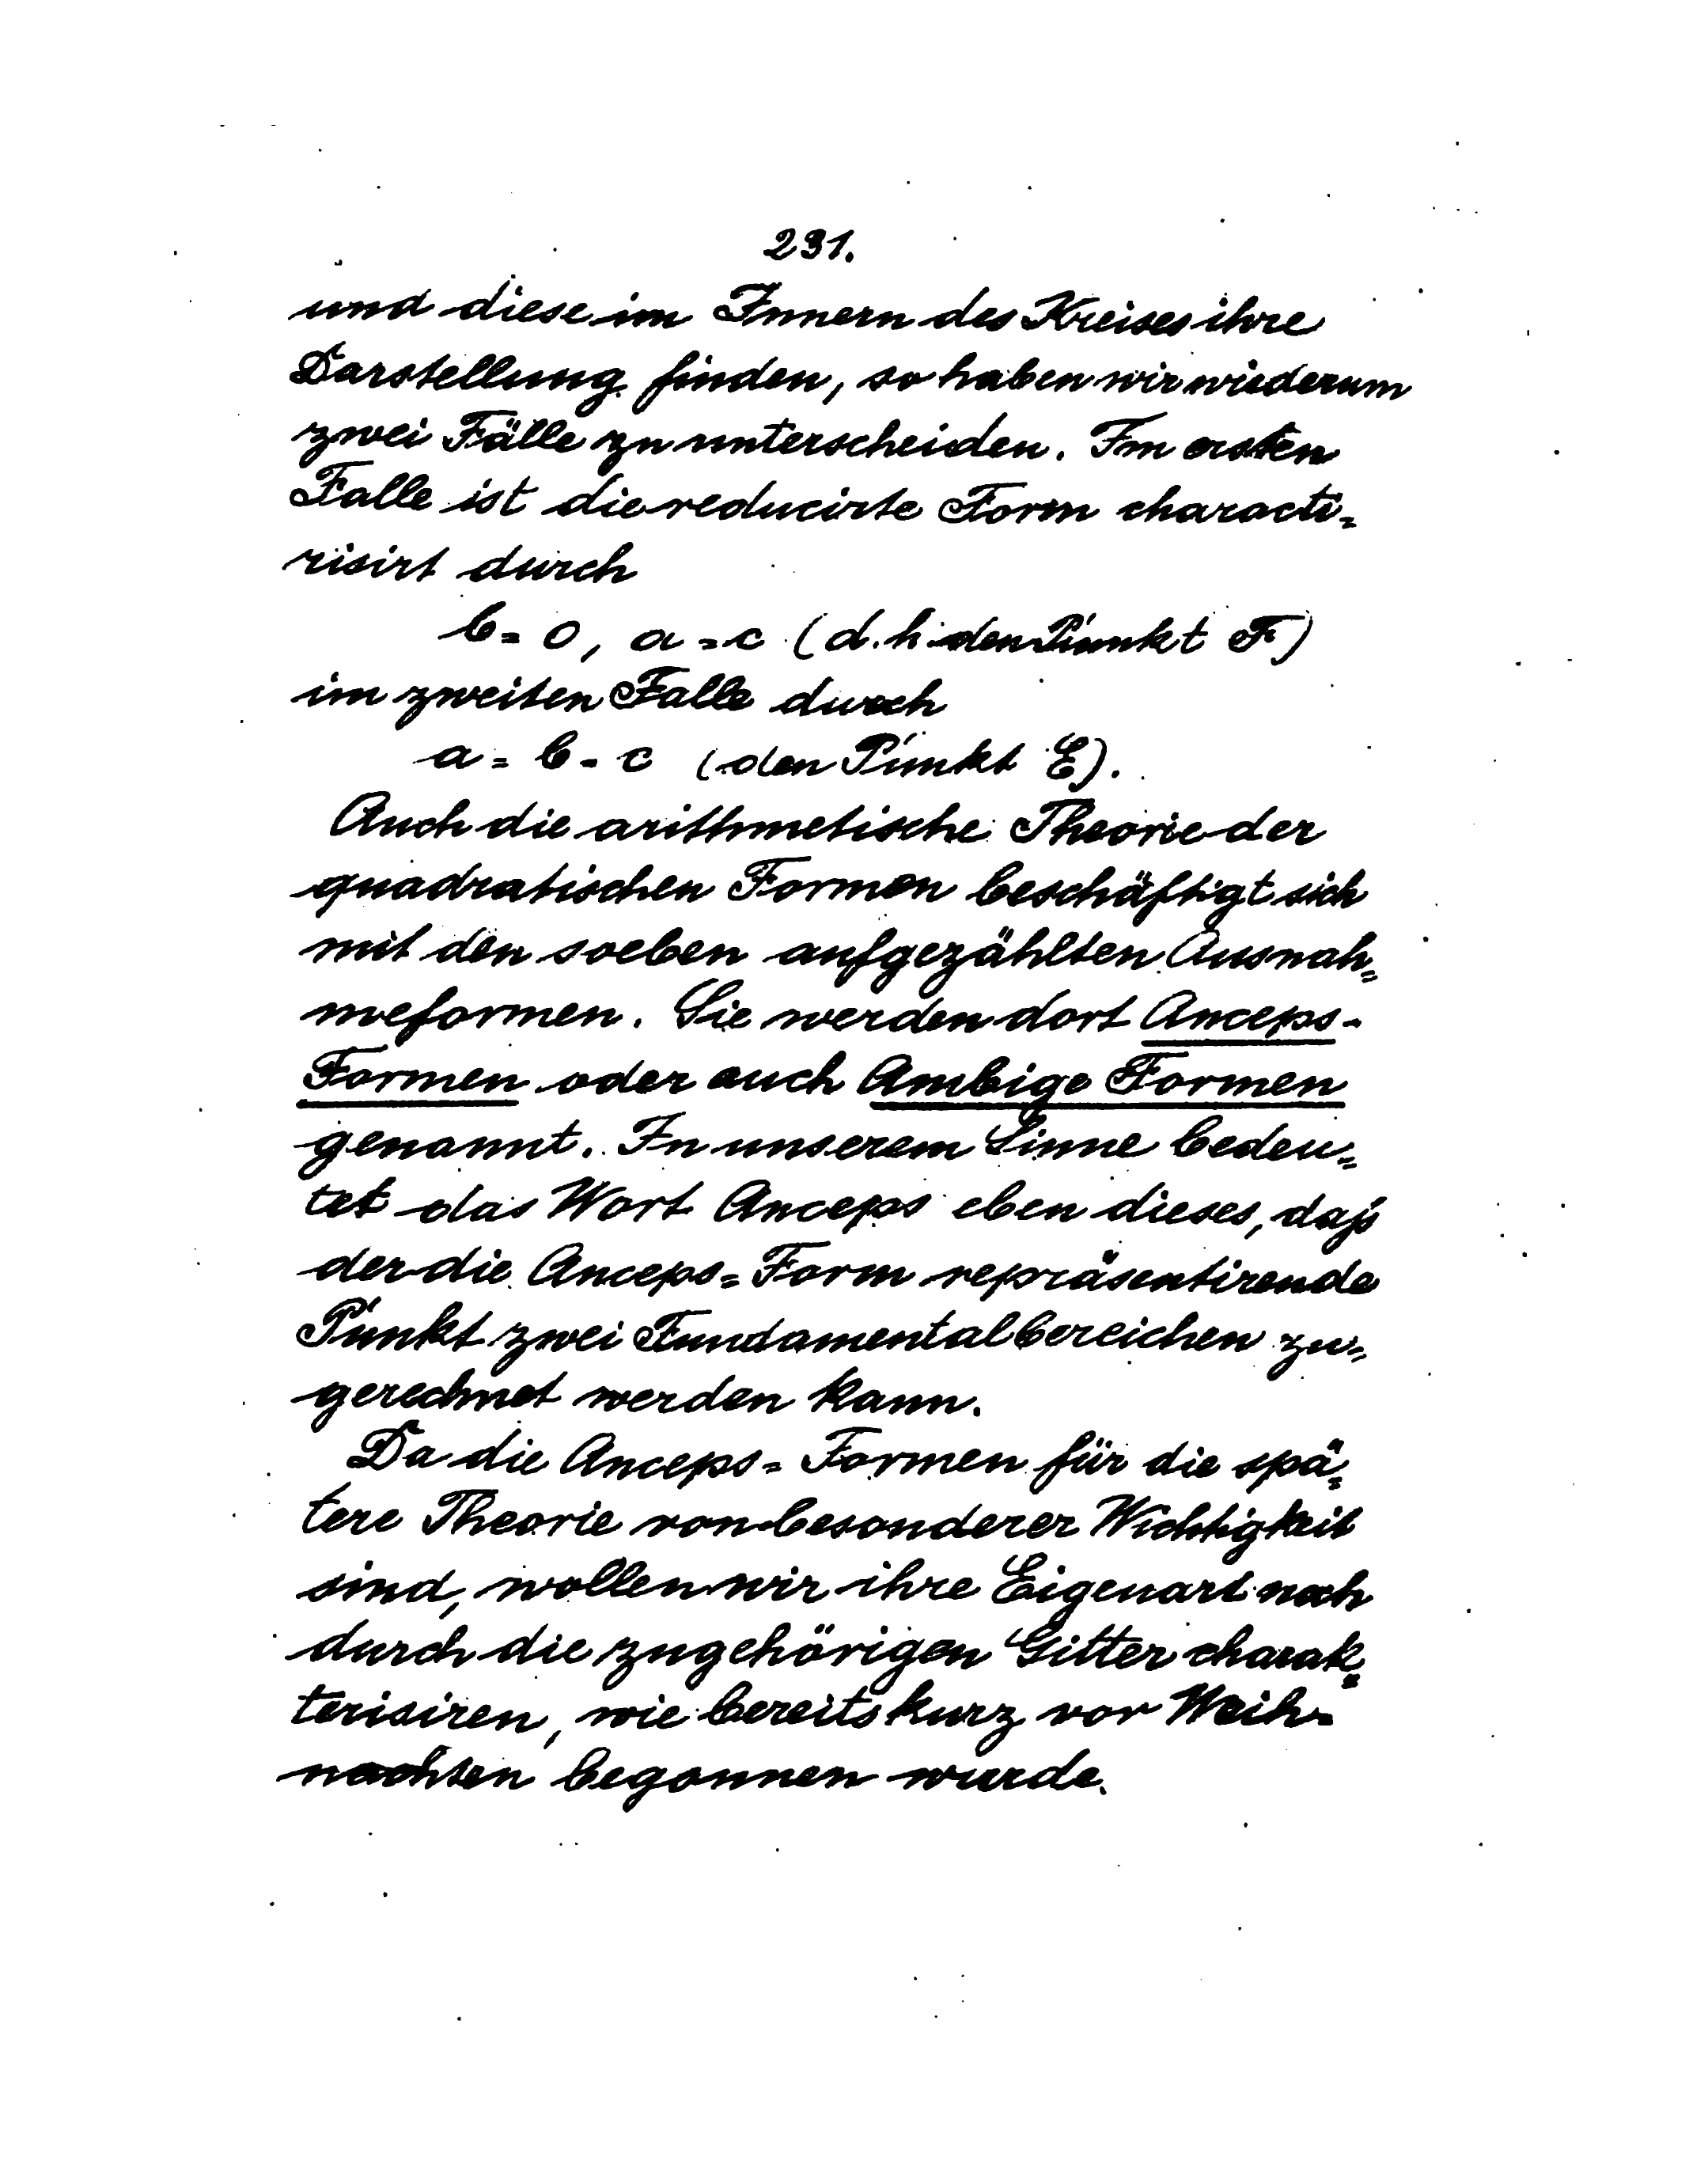 231.
und diese im Innern des Kreises ihre
Darstellung finden, so haben wir wiederum
zwei Fälle zu unterscheiden. Im ersten
Falle ist die reducirte Form characti-
risirt durch
b = 0, a = c (d. h. den Punkt F)
im zweiten Falle durch
a = b = c (den Punkt E).
Auch die arithmetische Theorie der
quadratischen Formen beschäftigt sich
mit den soeben aufgezählten Ausnah-
meformen. Sie werden dort Anceps-
Formen oder auch Ambige Formen
genannt. In unserem Sinne bedeu-
tet das Wort Anceps eben dieses, daß
der die Anceps-Form repräsentirende
Punkt zwei Fundamentalbereichen zu-
gerechnet werden kann.
Da die Anceps-Formen für die spä-
tere Theorie von besonderer Wichtigkeit
sind, wollen wir ihre Eigenart noch
durch die zugehörigen Gitter charak-
terisiren, wie bereits kurz vor Weih-
nachten begonnen wurde.